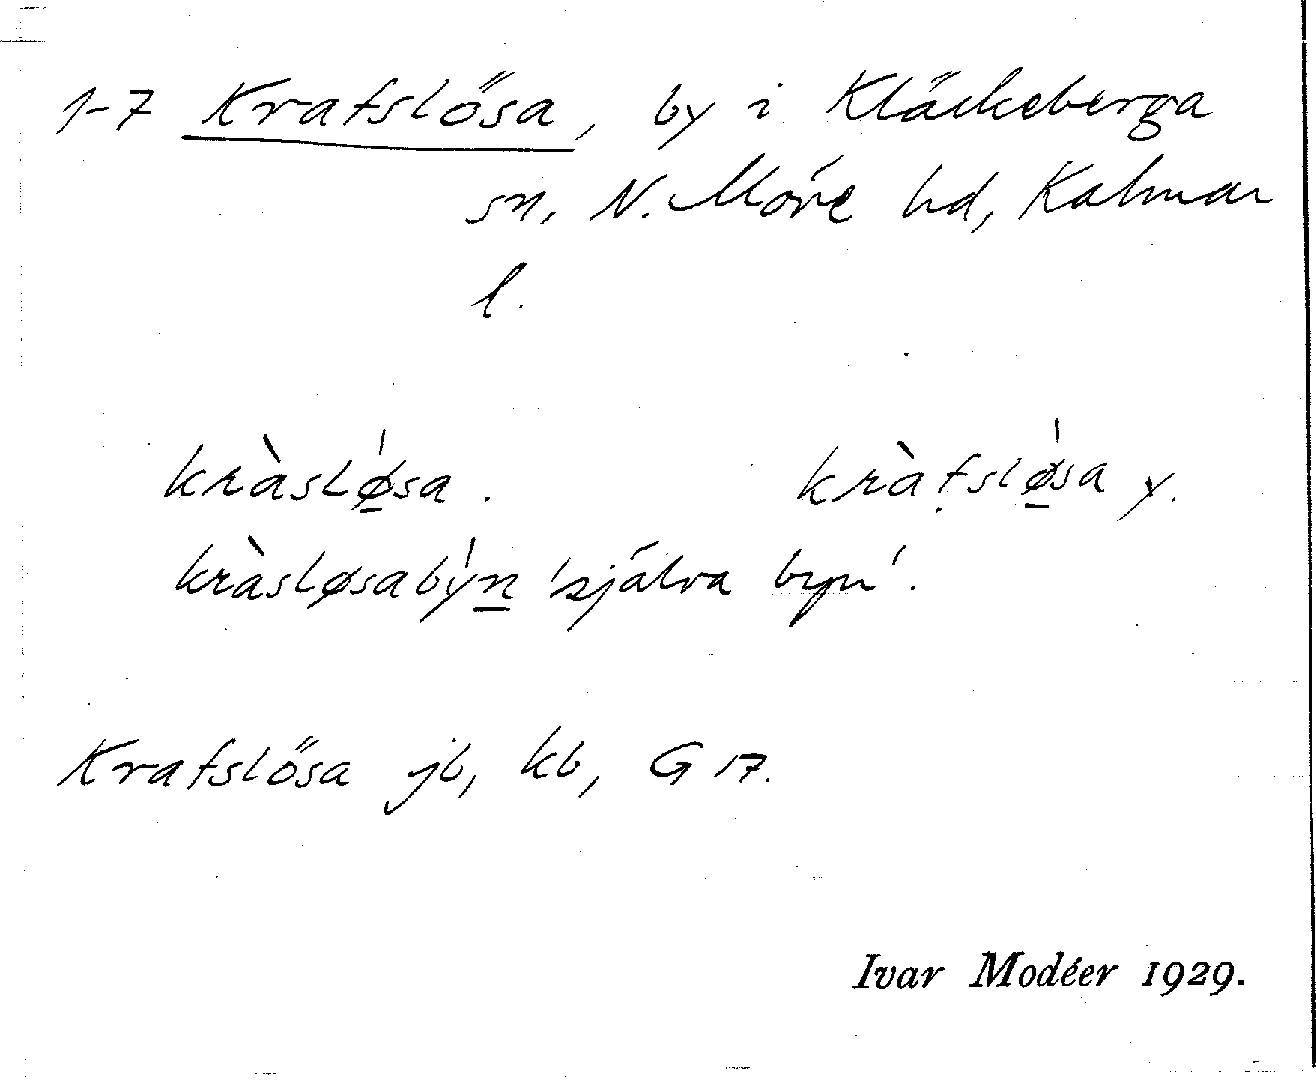 1-7 Krafslösa, by i Kläckeberga
sn, N. Möre hd, Kalmar
l.
kràslǿ̱sa. kràf̣slǿ̱sa y.
kràsløsabýṉ 'själva byn'.
Krafslösa jb, kb, G 17.
Ivar Modéer 1929.